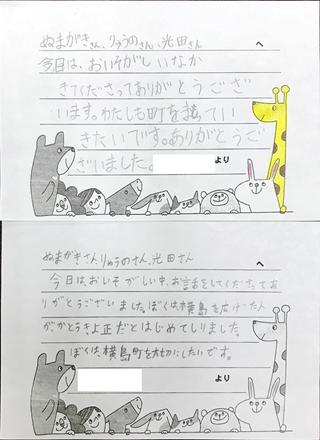 ぬまがきさん、りゅうのさん、光田さん へ
今日は、おいそがしいなか
きてくださってありがとうござ
います。わたしも町を
きたいです。ありがとうご
ざいました。 より
ぬまがきさんりゅうのさん、光田さん へ
今日は、おいそがしい中、お話をしてくださってあ
りがとうございました。ぼくは、横島を広げた人
がかとうきよ正だとはじめてしりました。
ぼくは、横島町を大切にしたいです。
より